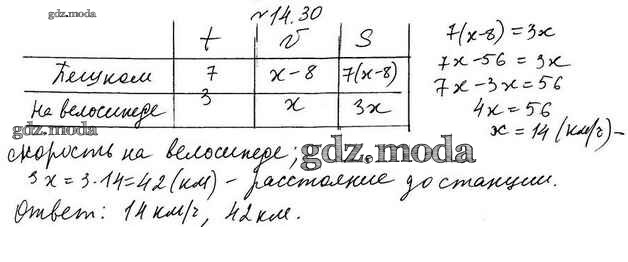 gdz.moda
№14.30
t v S
Пешком 7 x-8 7(x-8)
На велосипеде 3 x 3x
gdz.moda
7(x-8)=3x
7x-56=3x
7x-3x=56
4x=56
x=14(км/ч)-
скорость на велосипеде;
gdz.moda
3x=3·14=42(км)- расстояние до станции.
Ответ: 14 км/ч, 42 км.